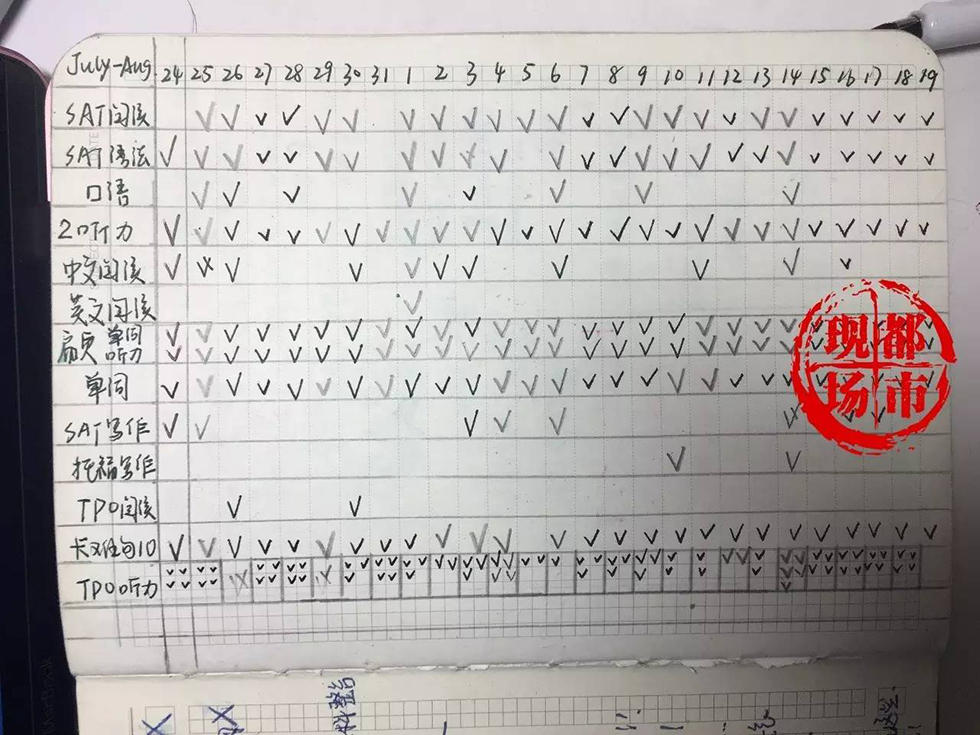 July-Aug 24 25 26 27 28 29 30 31 1 2 3 4 5 6 7 8 9 10 11 12 13 14 15 16 17 18 19
SAT阅读
SAT语法
口语
20听力
中文阅读
英文阅读
扇贝 单词
听力
单词
SAT写作
托福写作
TPO阅读
卡难句10
TPO听力
都市
现场